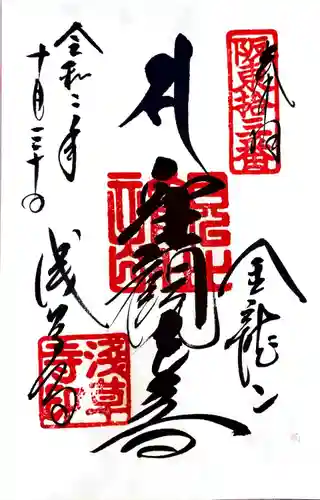 奉拝
坂東拾三番
金龍山
聖観世音
浅草寺
浅草寺印
令和二年
十月三十日